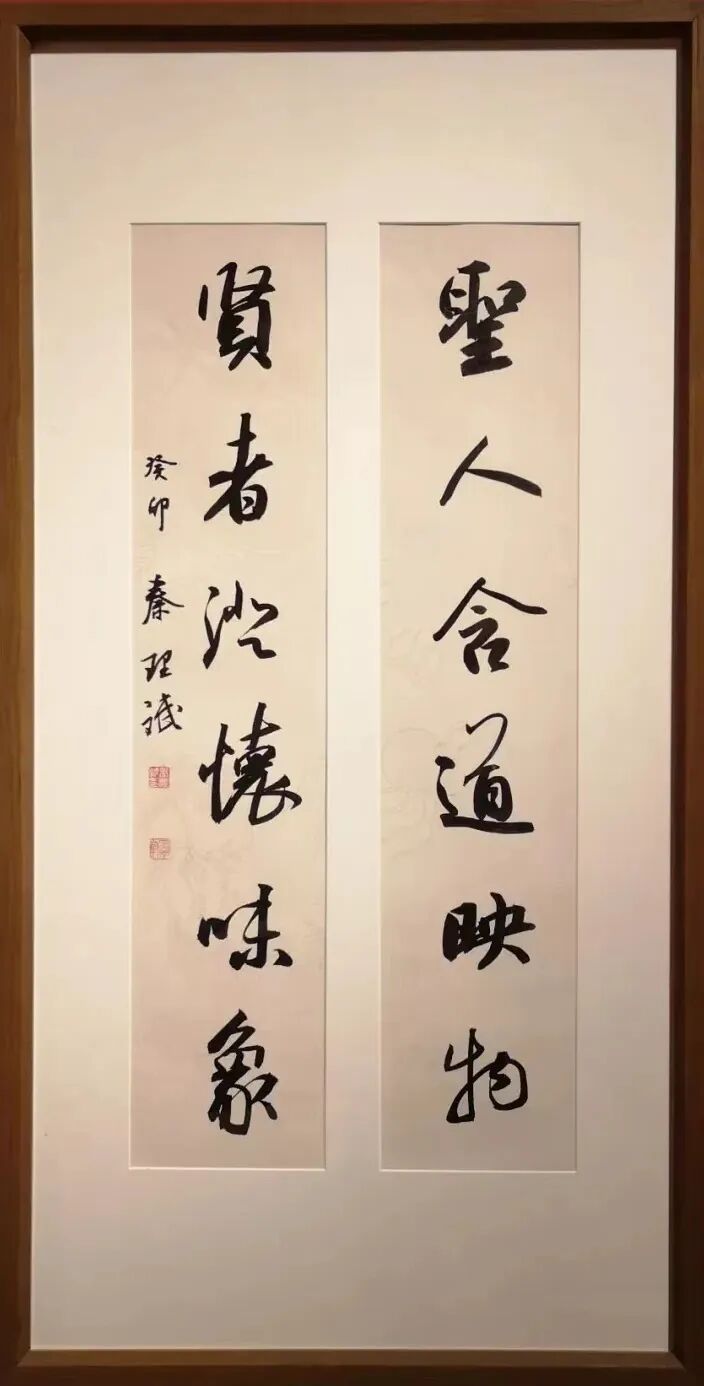 聖人含道映物
賢者澄懷味象
癸卯 秦理斌